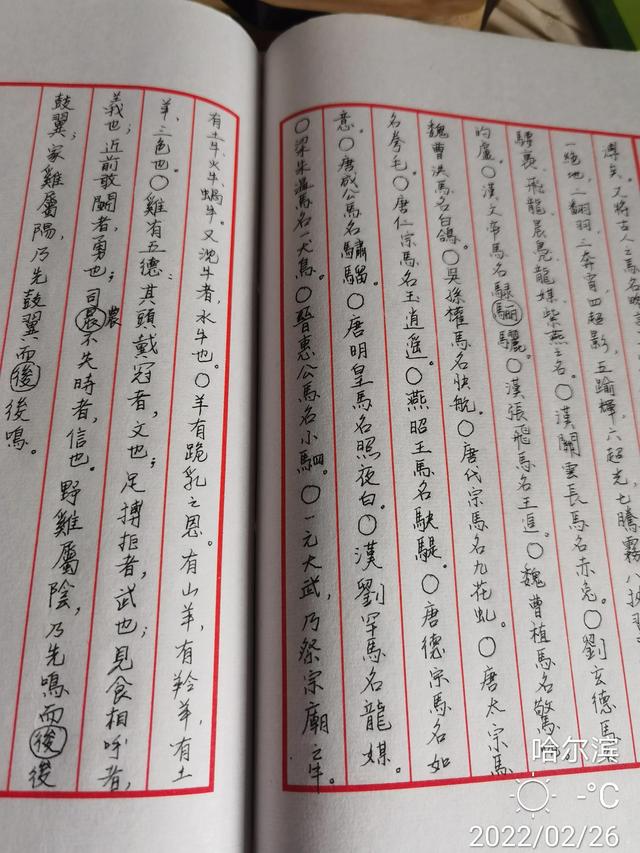 溥矣。又將古人之馬名
一絕地，二翻羽，三奔宵，四超影，五踰輝，六超光，七騰霧，八挾
驃裊、飛龍、晨鳧、龍媒、紫燕之名。〇漢關雲長馬名赤兔。〇劉玄德馬
的盧。〇漢文帝馬名騄驪驪。〇漢張飛馬名王追。〇魏曹植馬名驚
魏曹洪馬名白鴿。〇吳孫權馬名快航。〇唐代宗馬名九花虬。〇唐太宗馬
名拳毛。〇唐仁宗馬名玉逍遥。〇燕昭王馬名駃騠。〇唐德宗馬名如
意。〇唐成公馬名驌騮。〇唐明皇馬名照夜白。〇漢劉罕馬名龍媒。
〇梁朱溫馬名一犬烏。〇晉惠公馬名小駟。〇一元大武，乃祭宗廟之牛。
有土牛、火牛、蝸牛。又沈牛者，水牛也。〇羊有跪乳之恩。有山羊，有羚羊，有土
羊，三色也。〇雞有五德：其頭戴冠者，文也；足搏拒者，武也；見食相呼者，
義也；近前敢鬭者，勇也；司晨農不失時者，信也。野雞屬陰，乃先鳴而後後
鼓翼；家雞屬陽，乃先鼓翼而後後鳴。
哈尔滨
-°C
2022/02/26